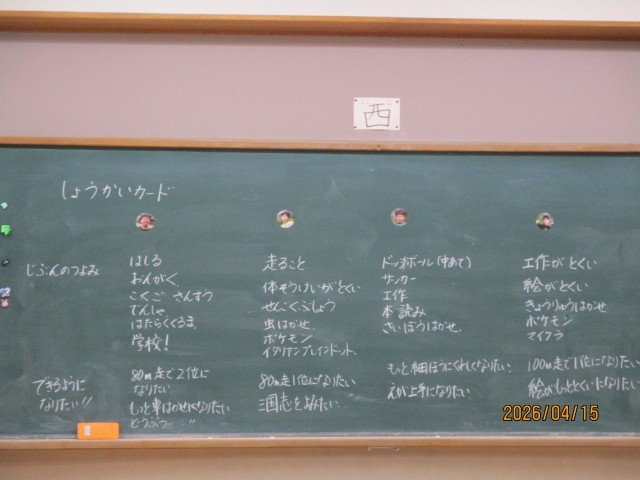 西
しょうかいカード
じぶんのつよみ
はしる
おんがく
こくご さんすう
でんしゃ
はたらくくるま、
学校!
走ること
体そうけいがとくい
せんごくぶしょう
虫はかせ.
ポケモン
イタリアンブレインロット.
ドッヂボール(中あて)
サッカー
工作
本読み
さいぼうはかせ.
工作がとくい
絵がとくい
きょうりゅうはかせ
ポケモン
マイクラ
できるように
なりたい!!
80m走で2位に
なりたい
もっと車はかせになりたい
どうぶつ 〃
80m走1位になりたい
三国志をよみたい.
もっと細ぼうにくわしくなりたい.
えが上手になりたい.
100m走で1位になりたい
絵がもっととくいになりたい
2026/04/15